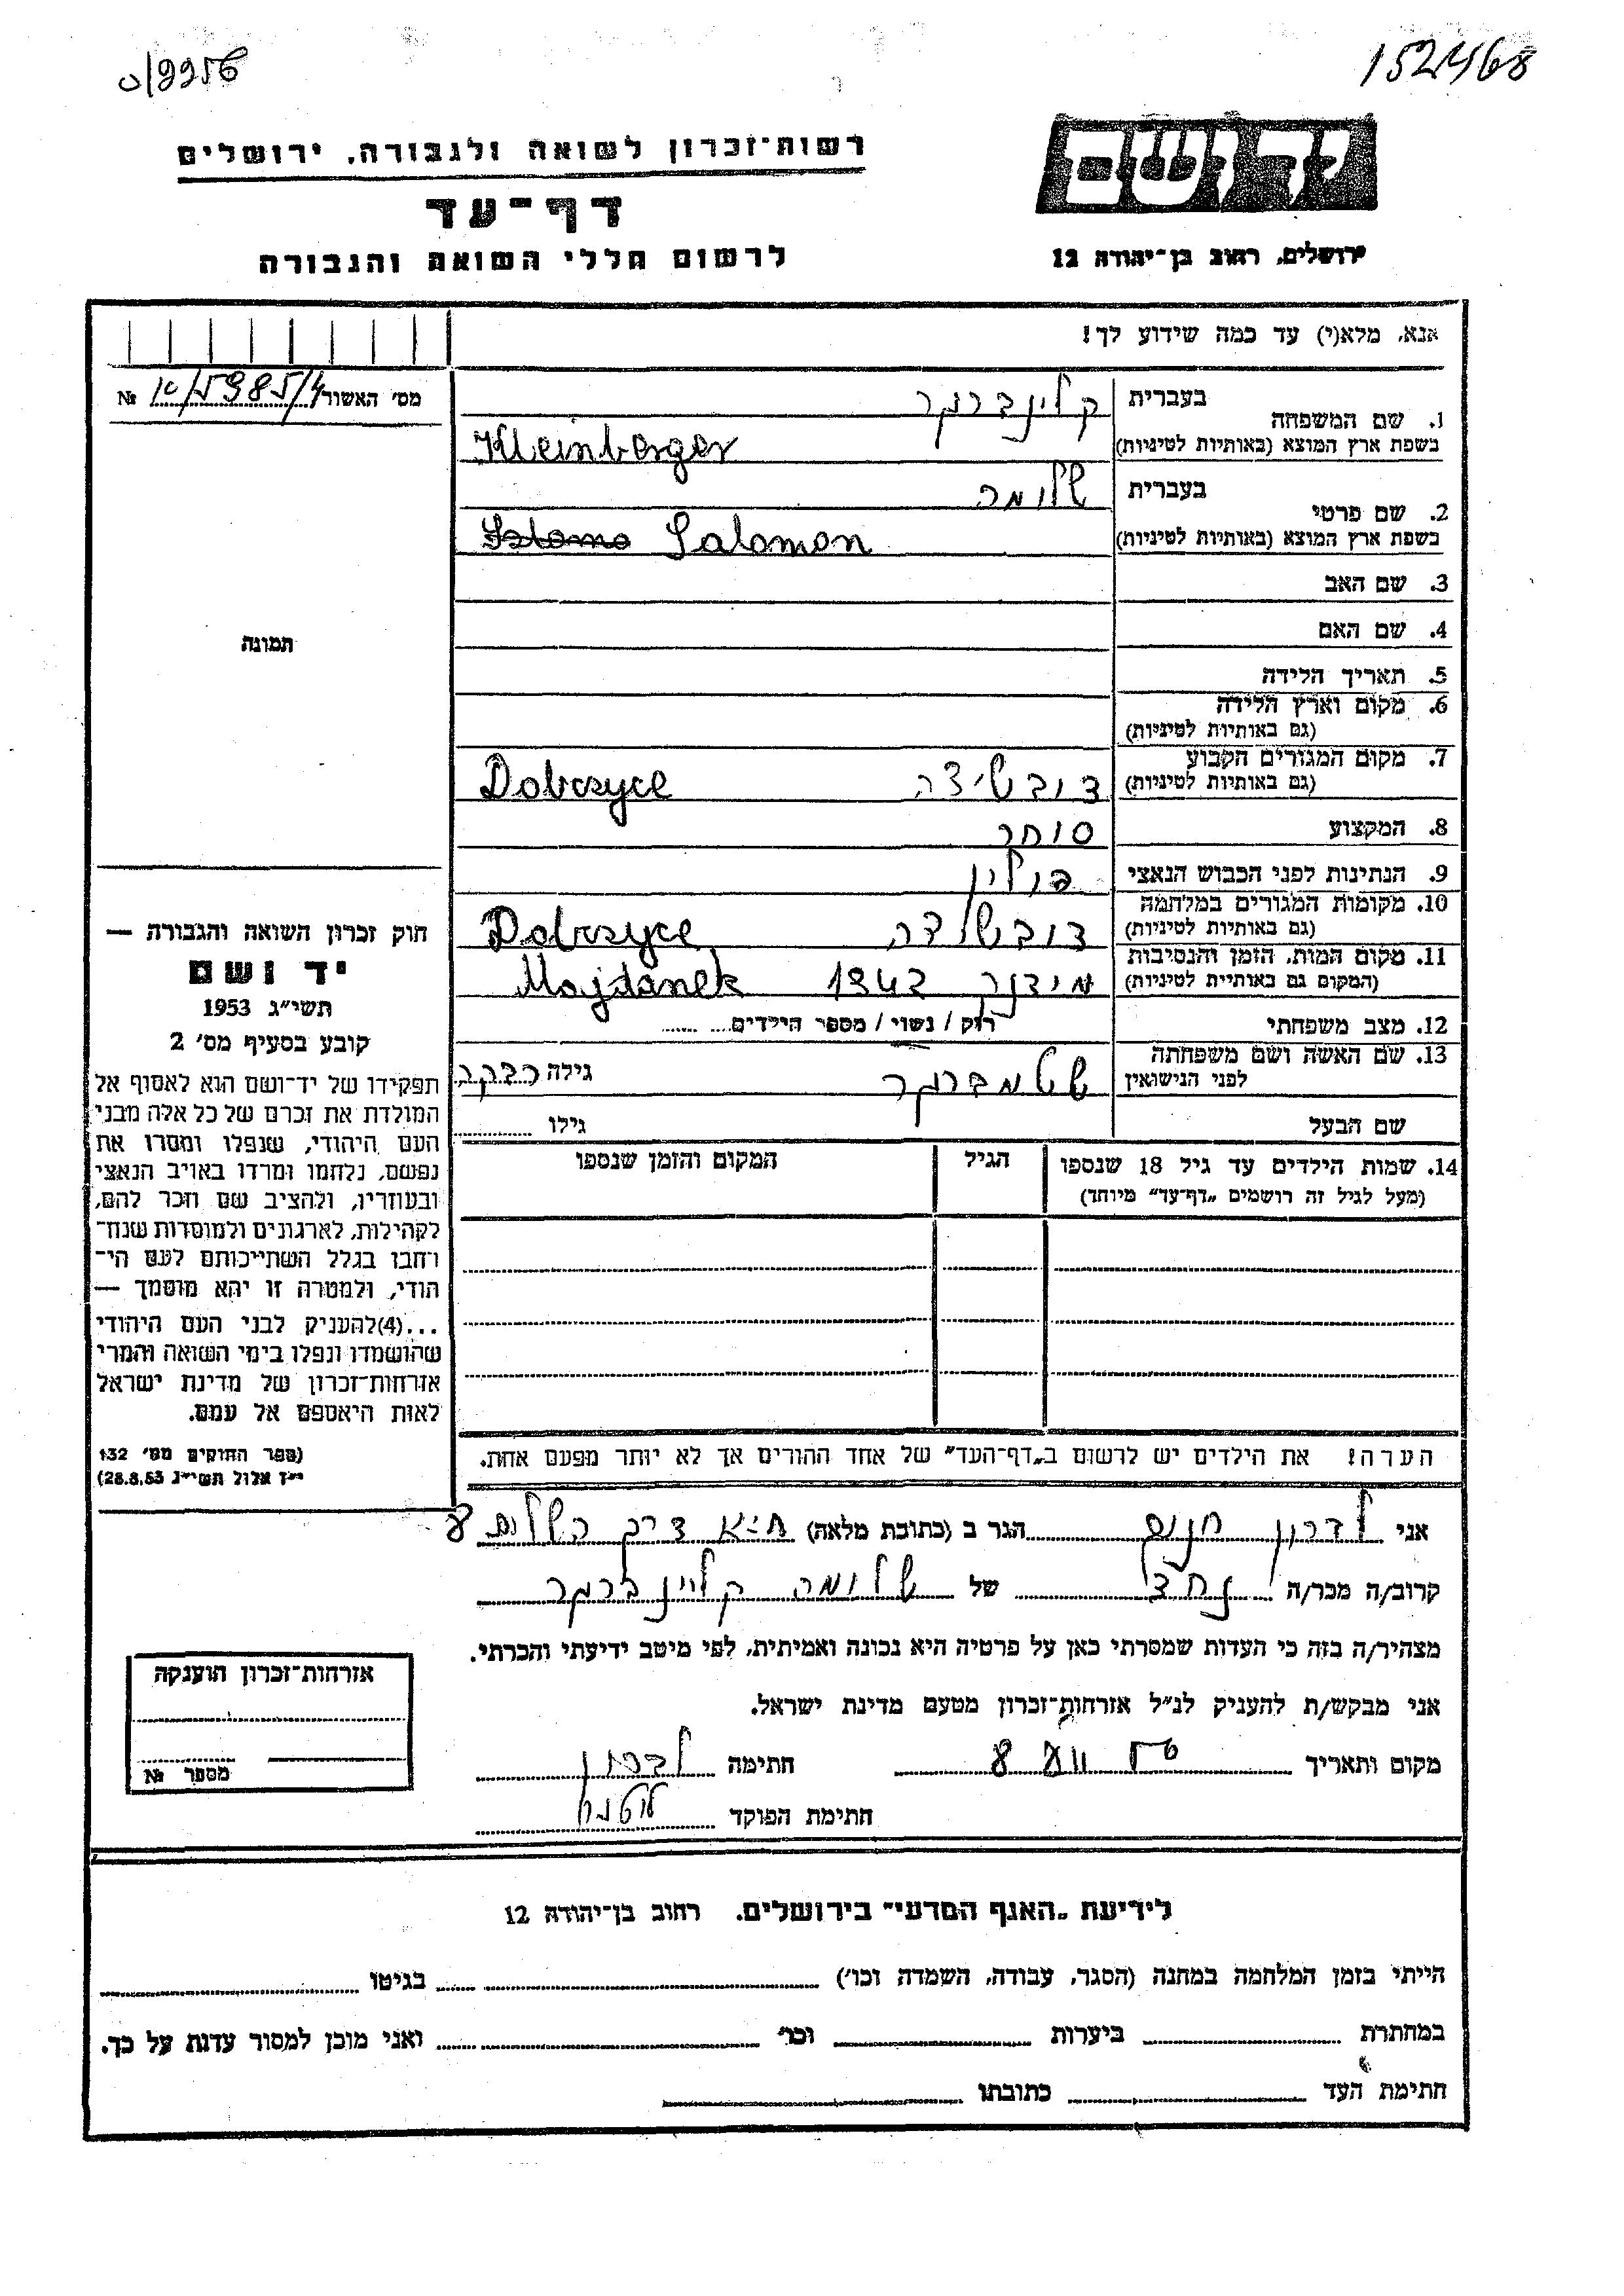 152468
רשות־זכרון לשואה ולגבורה, ירושלים
יד ושם
דף־עד
לרשום חללי השואה והגבורה
ירושלים, רחוב בן־יהודה 12
אנא, מלא(י) עד כמה שידוע לך!
מס׳ האשור
№
1. שם המשפחה
בעברית
קלינברגר
בשפת ארץ המוצא (באותיות לטיניות)
Kleinberger
2. שם פרטי
בעברית
שלומה
בשפת ארץ המוצא (באותיות לטיניות)
Salomon
3. שם האב
4. שם האם
תמונה
5. תאריך הלידה
6. מקום וארץ הלידה
(גם באותיות לטיניות)
7. מקום המגורים הקבוע
(גם באותיות לטיניות)
דובשיצה Dobrzyce
8. המקצוע
סוחר
9. הנתינות לפני הכבוש הנאצי
פולין
10. מקומות המגורים במלחמה
(גם באותיות לטיניות)
Dobrzyce
11. מקום המות, הזמן והנסיבות
(המקום גם באותיית לטיניות)
מידנק 1942 Majdanek
12. מצב משפחתי
רוק / נשוי / מספר הילדים
13. שם האשה ושם משפחתה
לפני הנישואין
גילה
שם הבעל
גילו
14. שמות הילדים עד גיל 18 שנספו
(מעל לגיל זה רושמים „דף־עד״ מיוחד)
הגיל
המקום והזמן שנספו
הערה! את הילדים יש לרשום ב„דף־העד״ של אחד ההורים אך לא יותר מפעם אחת.
חוק זכרון השואה והגבורה —
יד ושם
תשי״ג 1953
קובע בסעיף מס׳ 2
תפקידו של יד־ושם הוא לאסוף אל
המולדת את זכרם של כל אלה מבני
העם היהודי, שנפלו ומסרו את
נפשם, נלחמו ומרדו באויב הנאצי
ובעוזריו, ולהציב שם וזכר להם,
לקהילות, לארגונים ולמוסדות שנח־
רחבו בגלל השתייכותם לעם הי־
הודי, ולמטרה זו יהא מוסמך —
...(4)להעניק לבני העם היהודי
שהושמדו ונפלו בימי השואה והמרי
אזרחות־זכרון של מדינת ישראל
לאות היאספם אל עמם.
(ספר החוקים מס׳ 132
י״ז אלול תשי״ג 28.8.53)
אני לדרון הגר ב (כתובת מלאה) ת״א דרך השלום 8
קרוב/ה מכר/ה נחד של שלומה קליינברגר
מצהיר/ה בזה כי העדות שמסרתי כאן על פרטיה היא נכונה ואמיתית, לפי מיטב ידיעתי והכרתי.
אני מבקש/ת להעניק לנ״ל אזרחות־זכרון מטעם מדינת ישראל.
מקום ותאריך
חתימה לדרון
חתימת הפוקד
אזרחות־זכרון הוענקה
מספר №
לידיעת „האגף המדעי״ בירושלים, רחוב בן־יהודה 12
הייתי בזמן המלחמה במחנה (הסגר, עבודה, השמדה וכו׳) בגיטו
במחתרת ביערות וכו׳ ואני מוכן למסור עדות על כך.
חתימת העד כתובתו